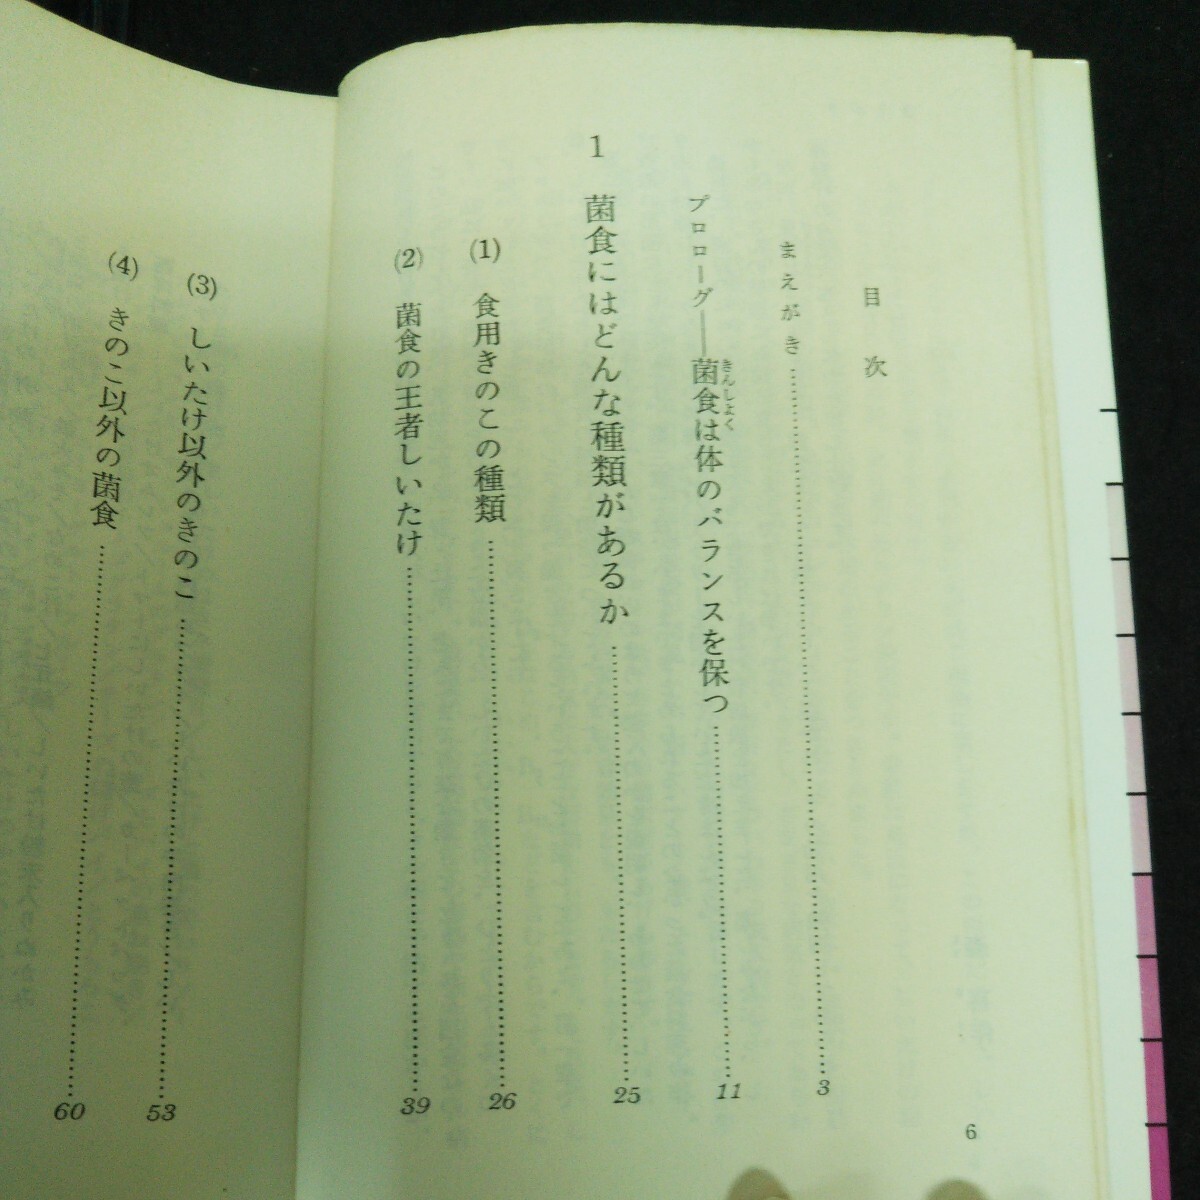 目次
まえがき……………3
プロローグ――菌食は体のバランスを保つ……………11
きんしょく
1 菌食にはどんな種類があるか……………25
(1) 食用きのこの種類……………26
(2) 菌食の王者しいたけ……………39
6
(3) しいたけ以外のきのこ……………53
(4) きのこ以外の菌食……………60